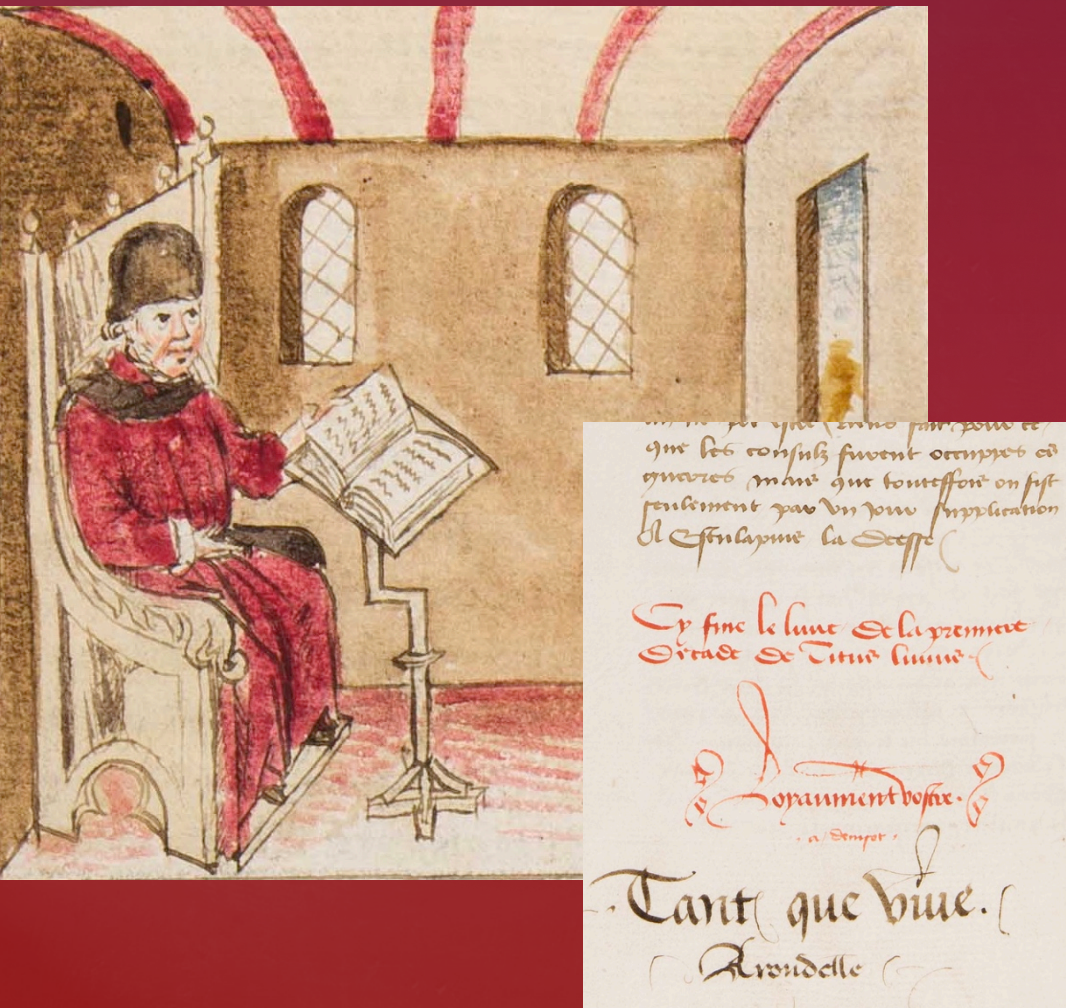 que les consulz furent occuppes es
guerres mais que touteffois on fist
seulement par un jour supplication
A Esculapius la deesse
Cy fine le livre de la premiere
decade de Titus livius
Loyaument vostre.
Tant que vive.
Arondelle